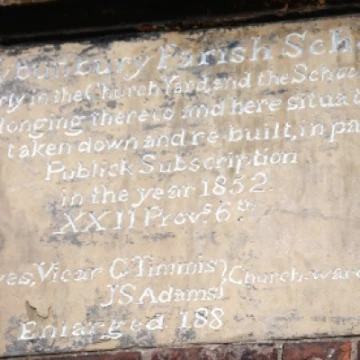 ybunbury Parish Sch
rly in the Church Yard, and the Schoo
longing thereto and here situat
taken down and re-built, in pa
Publick Subscription
in the year 1852.
XXII Provs 6th
ves, Vicar C. Timmis } Church-ward
J S Adams
Enlarged 188